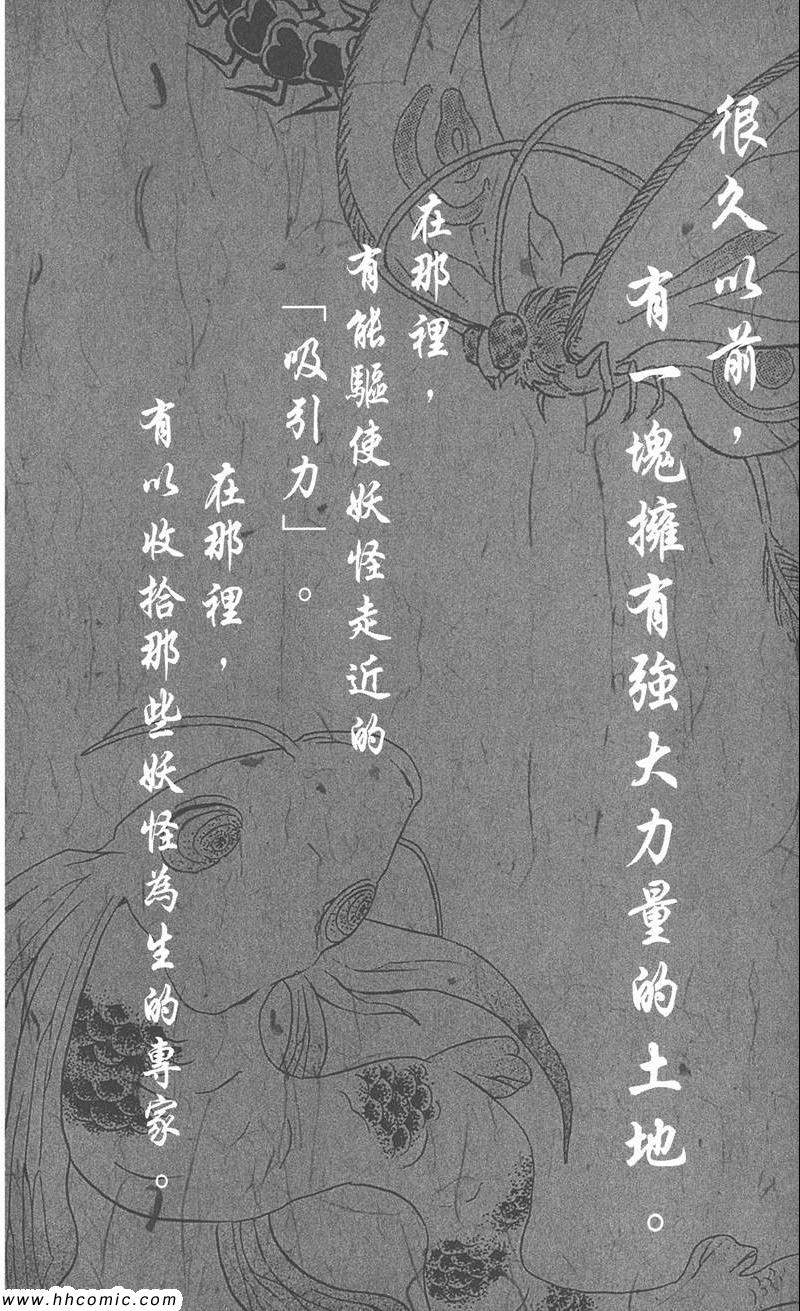 很久以前，
有一塊擁有強大力量的土地。
在那裡，
有能驅使妖怪走近的
「吸引力」。
在那裡，
有以收拾那些妖怪為生的專家。
www.hhcomic.com